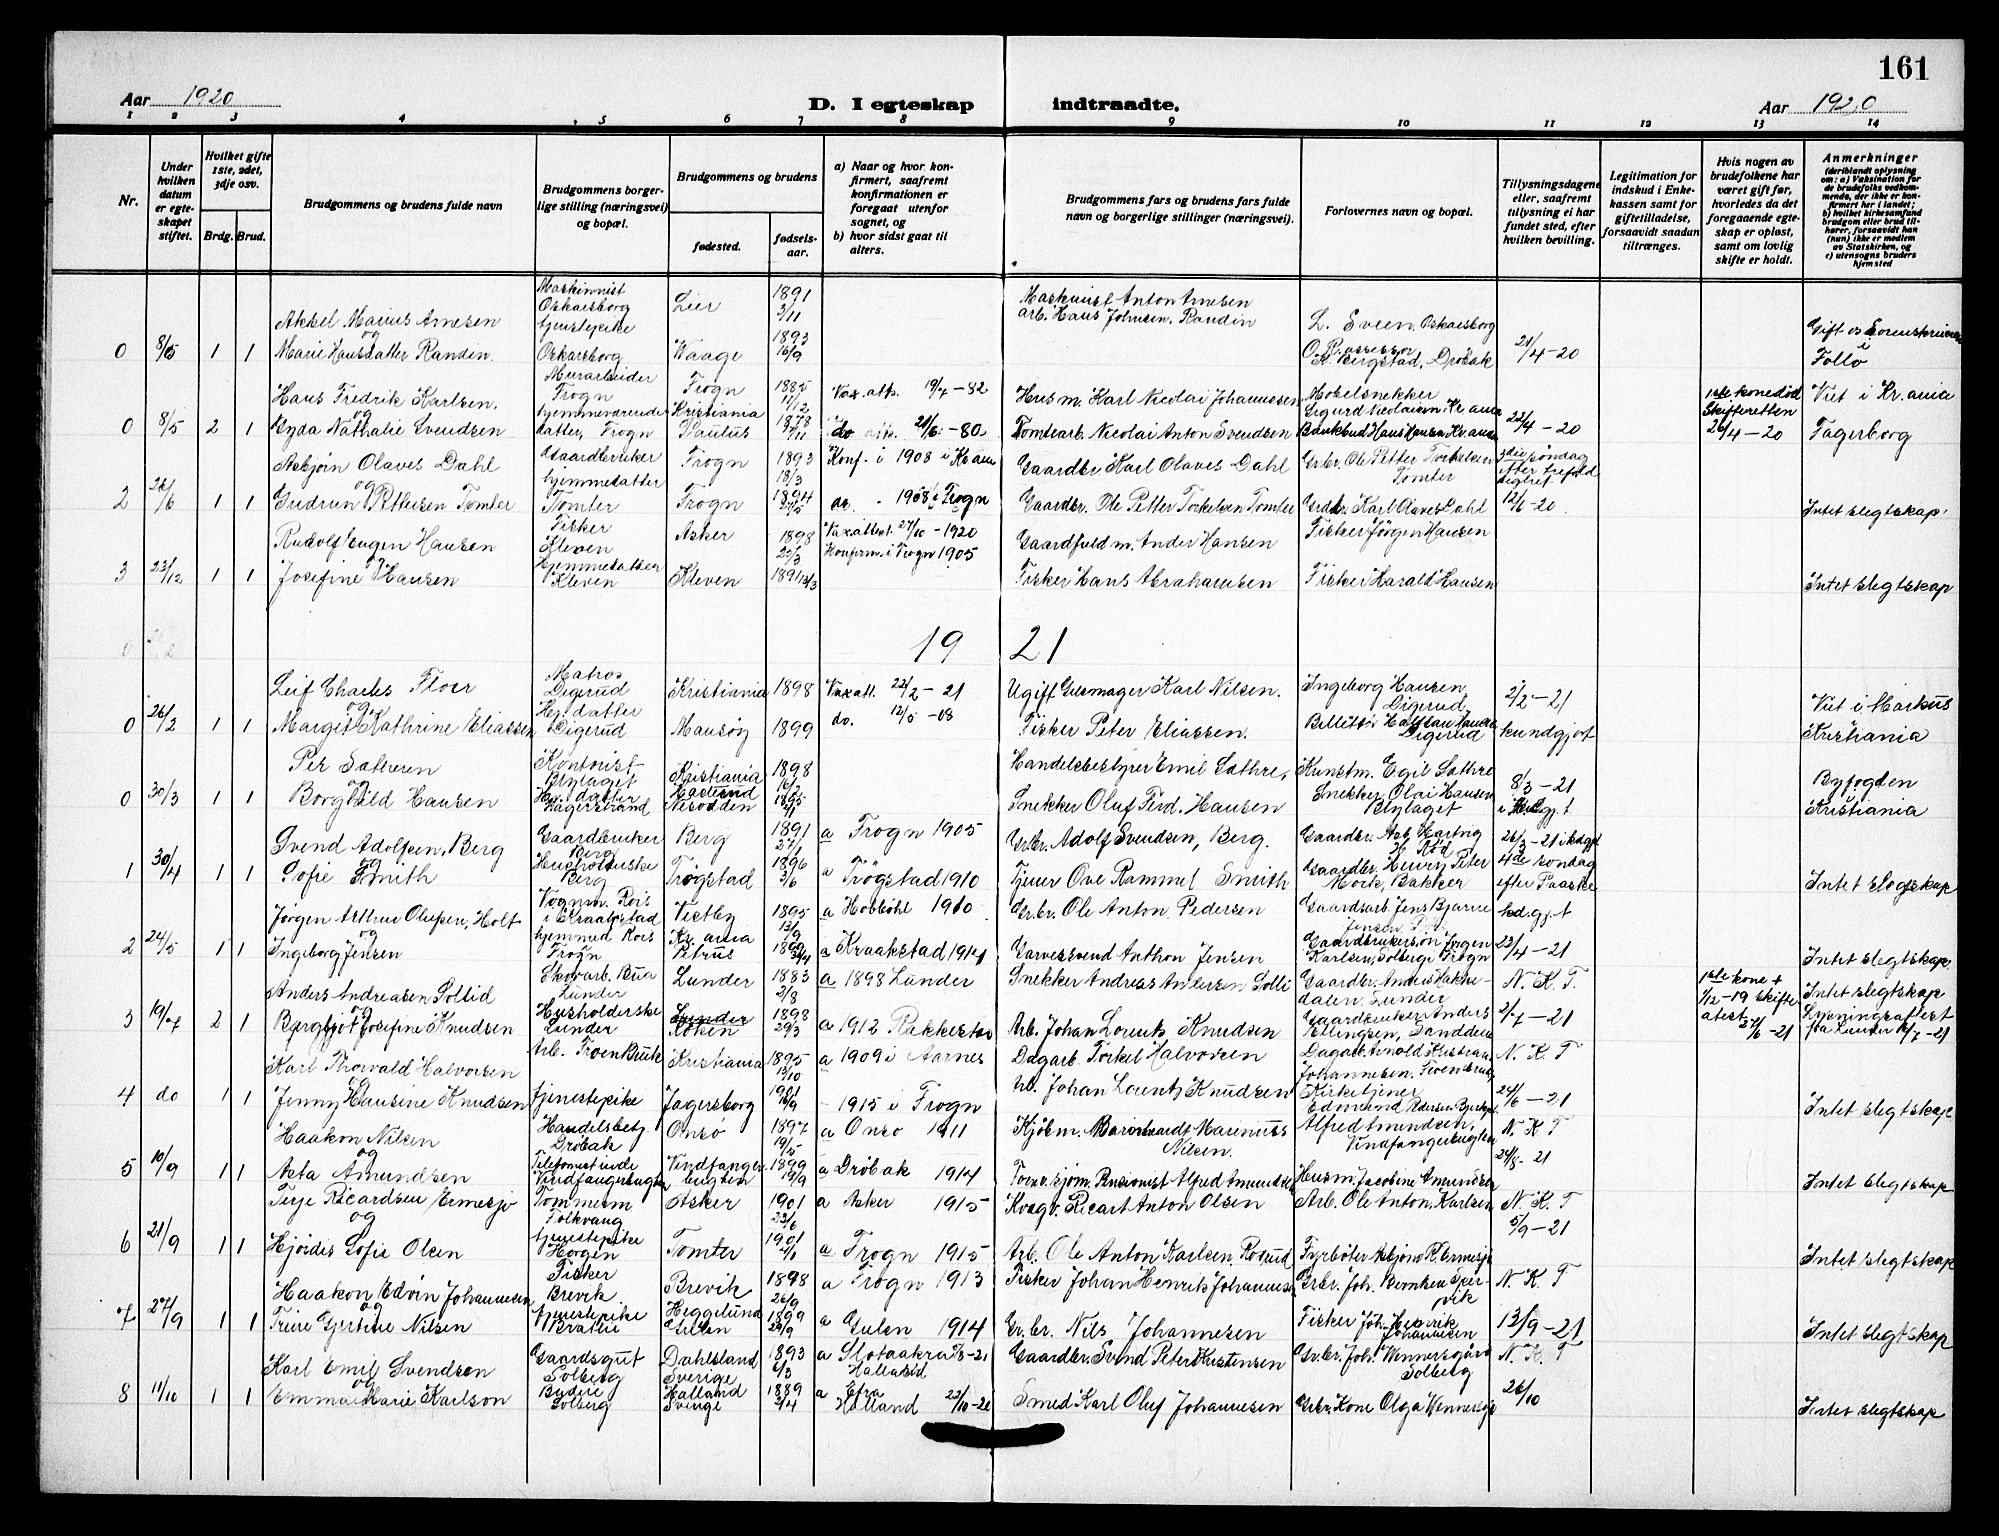 161
Aar 1920
D. I egteskap indtraadte.
Aar 1920
1 2 3 4 5 6 7 8 9 10 11 12 13 14
Nr.
Under hvilken datum er egteskapet stiftet.
Hvilket gifte 1ste, 2det, 3dje osv.
Brdg. Brud.
Brudgommens og brudens fulde navn
Brudgommens borgerlige stilling (næringsvei) og bopæl.
Brudgommens og brudens
fødested. fødselsaar.
a) Naar og hvor konfirmert, saafremt konfirmationen er foregaat utenfor sognet, og
b) hvor sidst gaat til alters.
Brudgommens fars og brudens fars fulde navn og borgerlige stillinger (næringsvei).
Forlovernes navn og bopæl.
Tillysningsdagene eller, saafremt tillysning ei har fundet sted, efter hvilken bevilling.
Legitimation for indskud i Enkekassen samt for giftetilladelse, forsaavidt saadan tiltrænges.
Hvis nogen av brudefolkene har været gift før, hvorledes da det foregaaende egteskap er opløst, samt om lovlig skifte er holdt.
Anmerkninger (deriblandt oplysning om: a) Vaksination for de brudefolks vedkommende, der ikke er konfirmert her i landet; b) hvilket kirkesamfund brudgom eller brud tilhører, forsaavidt han (hun) ikke er medlem av Statskirken, og c) utensogns bruders hjemsted
Maskinnist Oskarsborg Lier 1891 2/11 Maskinist Anton Arnesen
Akksel Marius Arnesen og tjenestepike arb. Hans Johnsen Randin L. Sveen, Oskarsborg Gift os Sorenskriveren i
0 8/5 1 1 Marie Hansdatter Randin. Oskarsborg Waage 1893 16/9 Bergstad, Drøbak 21/4-20 Follo
Hans Fredrik Karlsen. og Murarbeider Frogn Frogn 1885 11/12 Vax. att. 19/4-82 Husm. Karl Nicolai Johannessen Møbelsnekker Sigurd Nicolaisen Kr.ania 1ste kone død Skifteretten Viet i Kr.ania
0 8/5 2 1 Gyda Nathalie Svendsen hjemmeværende datter, Frogn Kristiania Paulus 1878 7/11 do att. 21/6-80 Tomtearb. Nicolai Anton Svendsen Bankbud Hans Hansen Kr.ania 22/4-20 26/4-20 Fagerborg
Asbjørn Olaves Dahl og Gaardbruker Frogn 1893 18/3 Konf. i 1908 i Kr.ania Gaardbr. Karl Olaves Dahl Grbr. Ole Petter Torkelsen Tomter 3die søndag efter trefold
2 26/6 1 1 Gudrun Pettersen Tomter hjemmedatter Tomter Frogn 1894 do. - 1908 i Frogn Gaardbr. Ole Petter Torkelsen Tomter Grdbr. Karl Olaves Dahl 12/6-20. Intet slegtskap.
Rudolf Eugen Hansen og Fisker Kleven Asker 1898 20/3 Vaxattest 27/10-1920 Gaardfuldm. Ander Hansen Fisker Jørgen Hansen
3 23/12 1 1 Josefine Hansen Hjemmedatter Kleven Kleven 1891 13/3 Konfirm. i Frogn 1905 Fisker Hans Abrahamsen Fisker Harald Hansen Intet slegtskap
19 21
Leif Charles Floer og Matros Digerud Kristiania 1898 Vaxatt. 22/2-21 Ugift Gilsmager Karl Nilsen. Ingeborg Hansen, Digerud, 2/2-21 Viet i Markus
0 26/2 1 1 Margit Kathrine Eliassen Hj. datter Digerud Mausøy 1899 do. 12/5-08 Fisker Peter Eliassen. Digerud kundgjort Kristiania
Per Sathren og Kontorist Blylaget Kristiania 1898 Handelsbestyrer Emil Sathre, Kunstm. Egil Sathre 8/3-21 Byfogden
0 30/3 1 1 Borghild Hansen Hj. datter Hagerstrand Nesodden 1895 Snekker Oluf Ferd. Hansen Snekker Olai Hansen Blylaget Kristiania
Svend Adolfsen, Berg og Gaardbruker Berg Berg 1891 27/1 a Frogn 1905 Grbr. Adolf Svendsen, Berg. Gaardbr. Ast. Hartvig H. Rød 26/3-21 i kdgjt
1 30/4 1 1 Sofie Smith Husholderske Berg Trøgstad 1896 3/6 a Trøgstad 1910 Tjener Ove Rammel Smith Gaardbr. Henry Peter Mørk, Bakker 4de søndag efter Paaske Intet slegtskap
Jørgen Arthur Olufsen, Holt og Vognm. Rois i Kraakstad Vestby 1895 13/9 a Hobbøhl 1910 Gr.br. Ole Anton Pedersen Gaardsarb. Jens Bjarne Jensen kd.gj.t
2 24/5 1 1 Ingeborg Jensen hjemmed Rois Frogn Kr.ania Petrus 1899 a Kraakstad 1914 Garversvend Anthon Jensen Gaardbrukersøn Jørgen Karlsen, Solberg i Frogn 23/4-21 Intet slegtskap.
Anders Andreasen Sollid og Skovarb. Bua Lunder Lunder 1883 2/8 a 1898 Lunder Snekker Andreas Andersen Solli Gaardbr. Anders Hakkedalen, Lunder N.K.T. 1ste kone + 1/12-19 skifte Intet slegtskap
3 19/7 2 1 Bergljot Josefine Knudsen Husholderske Lunder Lunder Røken 1898 29/3 a 1912 Rakkestad Arb. Johan Lorents Knudsen Gaardbruker Anders Ellingsen, Sanddden 2/7-21 atest 27/6-21 Lysningsattest fra Lunder 14/7-21
Karl Thorvald Halvorsen og Arb. Froen Bruk Kristiania 1895 13/10 a 1909 i Aarnes Dagarb. Torkel Halvorsen Dagarb. Arnold Kristian Johannesen. Froenbruk N.K.T
4 do 1 1 Jenny Hansine Knudsen tjenestepike Fagersborg 1901 16/9 - 1915 i Frogn Arb. Johan Lorentz Knudsen Kirketjener Edmund Pedersen 24/6-21 Intet slegtskap
Haakon Nilsen og Handelsbetj. Drøbak Onsø 1897 19/5 a Onsø 1911 Kjøbm. Bernhardt Marinius Nilsen. Alfred Amundsen, Vindfangerbugten N.K.T
5 10/9 1 1 Asta Amundsen Telefonistinde Vindfangerbugten Vindfangerbugten 1899 a Drøbak 1914 Pensionist Alfred Amundsen Husm. Jacobine Amundsen 24/8-21 Intet slegtskap
Terje Ricardsen Ermesjø og Tømmerm Folkvang Asker 1901 23/6 a Asker 1915 Ricart Anton Olsen Arb. Ole Anton Karlsen N.K.T
6 21/9 1 1 Hjørdis Sofie Olsen tjenestepike Horgen Tomter 1901 a Frogn 1915 Arb. Ole Anton Karlsen Rosrud Fyrbøter Asbjørn R. Ermesjø 5/9-21 Intet slegtskap
Haakon Edvin Johannesen og Fisker Brevik Brevik 1898 26/9 a Frogn 1913 Fisker Johan Henrik Johannesen Grbr. Joh. Bernhensper-vik N.K.T
7 27/9 1 1 Trine Gjertine Nilsen tjenestepike Bratlie Heggelund Gulen 1899 29/9 a Gulen 1914 Gr.br. Nils Johannesen Fisker Joh. Henrik Johannesen 13/9-21 Intet slegtskap
Karl Emil Svendsen og Gaardsgut Solberg Dahlsland Sverige 1893 6/3 a Slotaakra Gaardbr. Svend Peter Kristensen Gr.br. Joh. Wennersgård Solberg N.K.T
8 11/10 1 1 Emma Marie Karlson Budeie Solberg Halland Sverige 1889 2/4 a Efra Halland 22/10-20 Smed Karl Oluf Johannesen Grbr. Kone Olga Wennersgå 26/10 Intet slegtskap